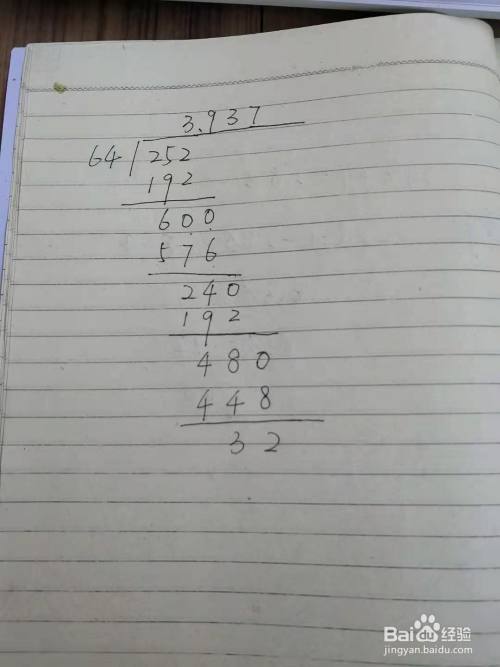 3.937
64 252
192
600
576
240
192
480
448
32
Baidu经验
jingyan.baidu.com